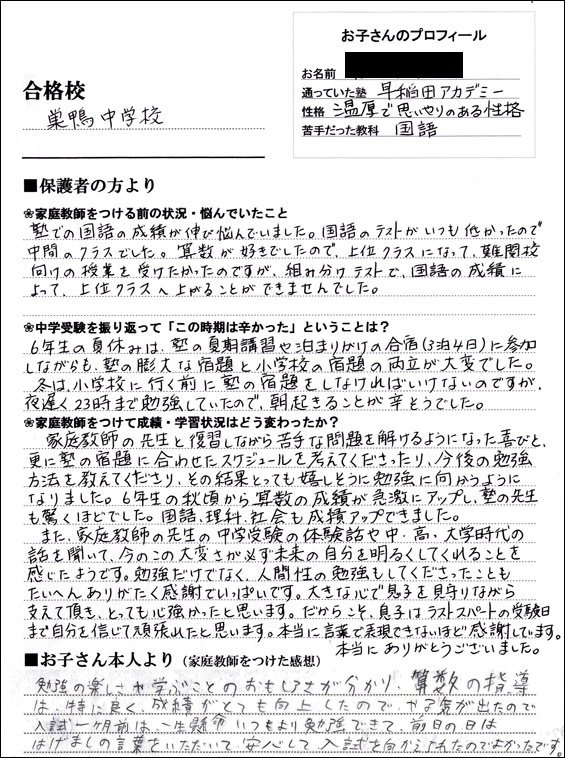 お子さんのプロフィール
お名前
通っていた塾 早稲田アカデミー
性格 温厚で思いやりのある性格
苦手だった教科 国語
合格校
巣鴨中学校
■保護者の方より
❀家庭教師をつける前の状況・悩んでいたこと
塾での国語の成績が伸び悩んでいました。国語のテストがいつも低かったので
中間のクラスでした。算数が好きでしたので、上位クラスになって、難関校
向けの授業を受けたかったのですが、組み分けテストで、国語の成績に
よって、上位クラスへ上がることができませんでした。
❀中学受験を振り返って「この時期は辛かった」ということは？
6年生の夏休みは、塾の夏期講習や泊まりがけの合宿(3泊4日)に参加
しながらも、塾の膨大な宿題と小学校の宿題の両立が大変でした。
冬は、小学校に行く前に塾の宿題をしなければいけないのですが、
夜遅く23時まで勉強していたので、朝起きることが辛そうでした。
❀家庭教師をつけて成績・学習状況はどう変わったか？
家庭教師の先生と復習しながら苦手な問題を解けるようになった喜びと、
更に塾の宿題に合わせたスケジュールを考えてくださったり、今後の勉強
方法を教えてくださり、その結果とっても嬉しそうに勉強に向かうように
なりました。6年生の秋頃から算数の成績が急激にアップし、塾の先生
も驚くほどでした。国語、理科、社会も成績アップできました。
また、家庭教師の先生の中学受験の体験話や中・高・大学時代の
話を聞いて、今のこの大変さが必ず未来の自分を明るくしてくれることを
感じたようです。勉強だけでなく、人間性の勉強もしてくださったことも
たいへんありがたく感謝でいっぱいです。大きな心で息子を見守りながら
支えて頂き、とっても心強かったと思います。だからこそ、息子はラストスパートの受験日
まで自分を信じて頑張れたと思います。本当に言葉で表現できないほど感謝しています。
本当にありがとうございました。
■お子さん本人より（家庭教師をつけた感想）
勉強の楽しさや学ぶことのおもしろさが分かり、算数の指導
は、特に良く、成績がとても向上したので、やる気が出たので
入試一ヶ月前は、一生懸命いつもより勉強できて、前日の日は
はげましの言葉をいただいて、安心して、入試を向かえられたのでよかったです。